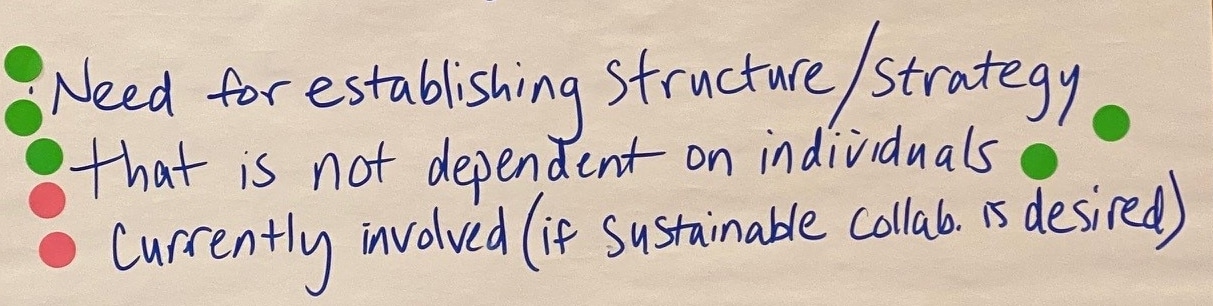 · Need for establishing structure/strategy
that is not dependent on individuals
currently involved (if sustainable collab. is desired)